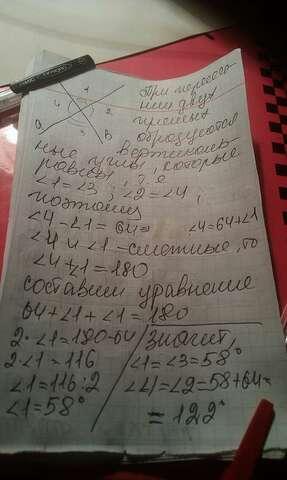 1
4 2
3
a B
При пересече-
нии двух
прямых
образуются
вертикаль-
ные углы, которые
равны, т.е
∠1=∠3; ∠2=∠4;
поэтому
∠4-∠1=64⇒ ∠4=64+∠1
∠4 и ∠1-смежные, то
∠4+∠1=180
составим уравнение
64+∠1+∠1=180
2·∠1=180-64
2·∠1=116
∠1=116:2
∠1=58°
значит,
∠1=∠3=58°
∠4=∠2=58+64=
=122°